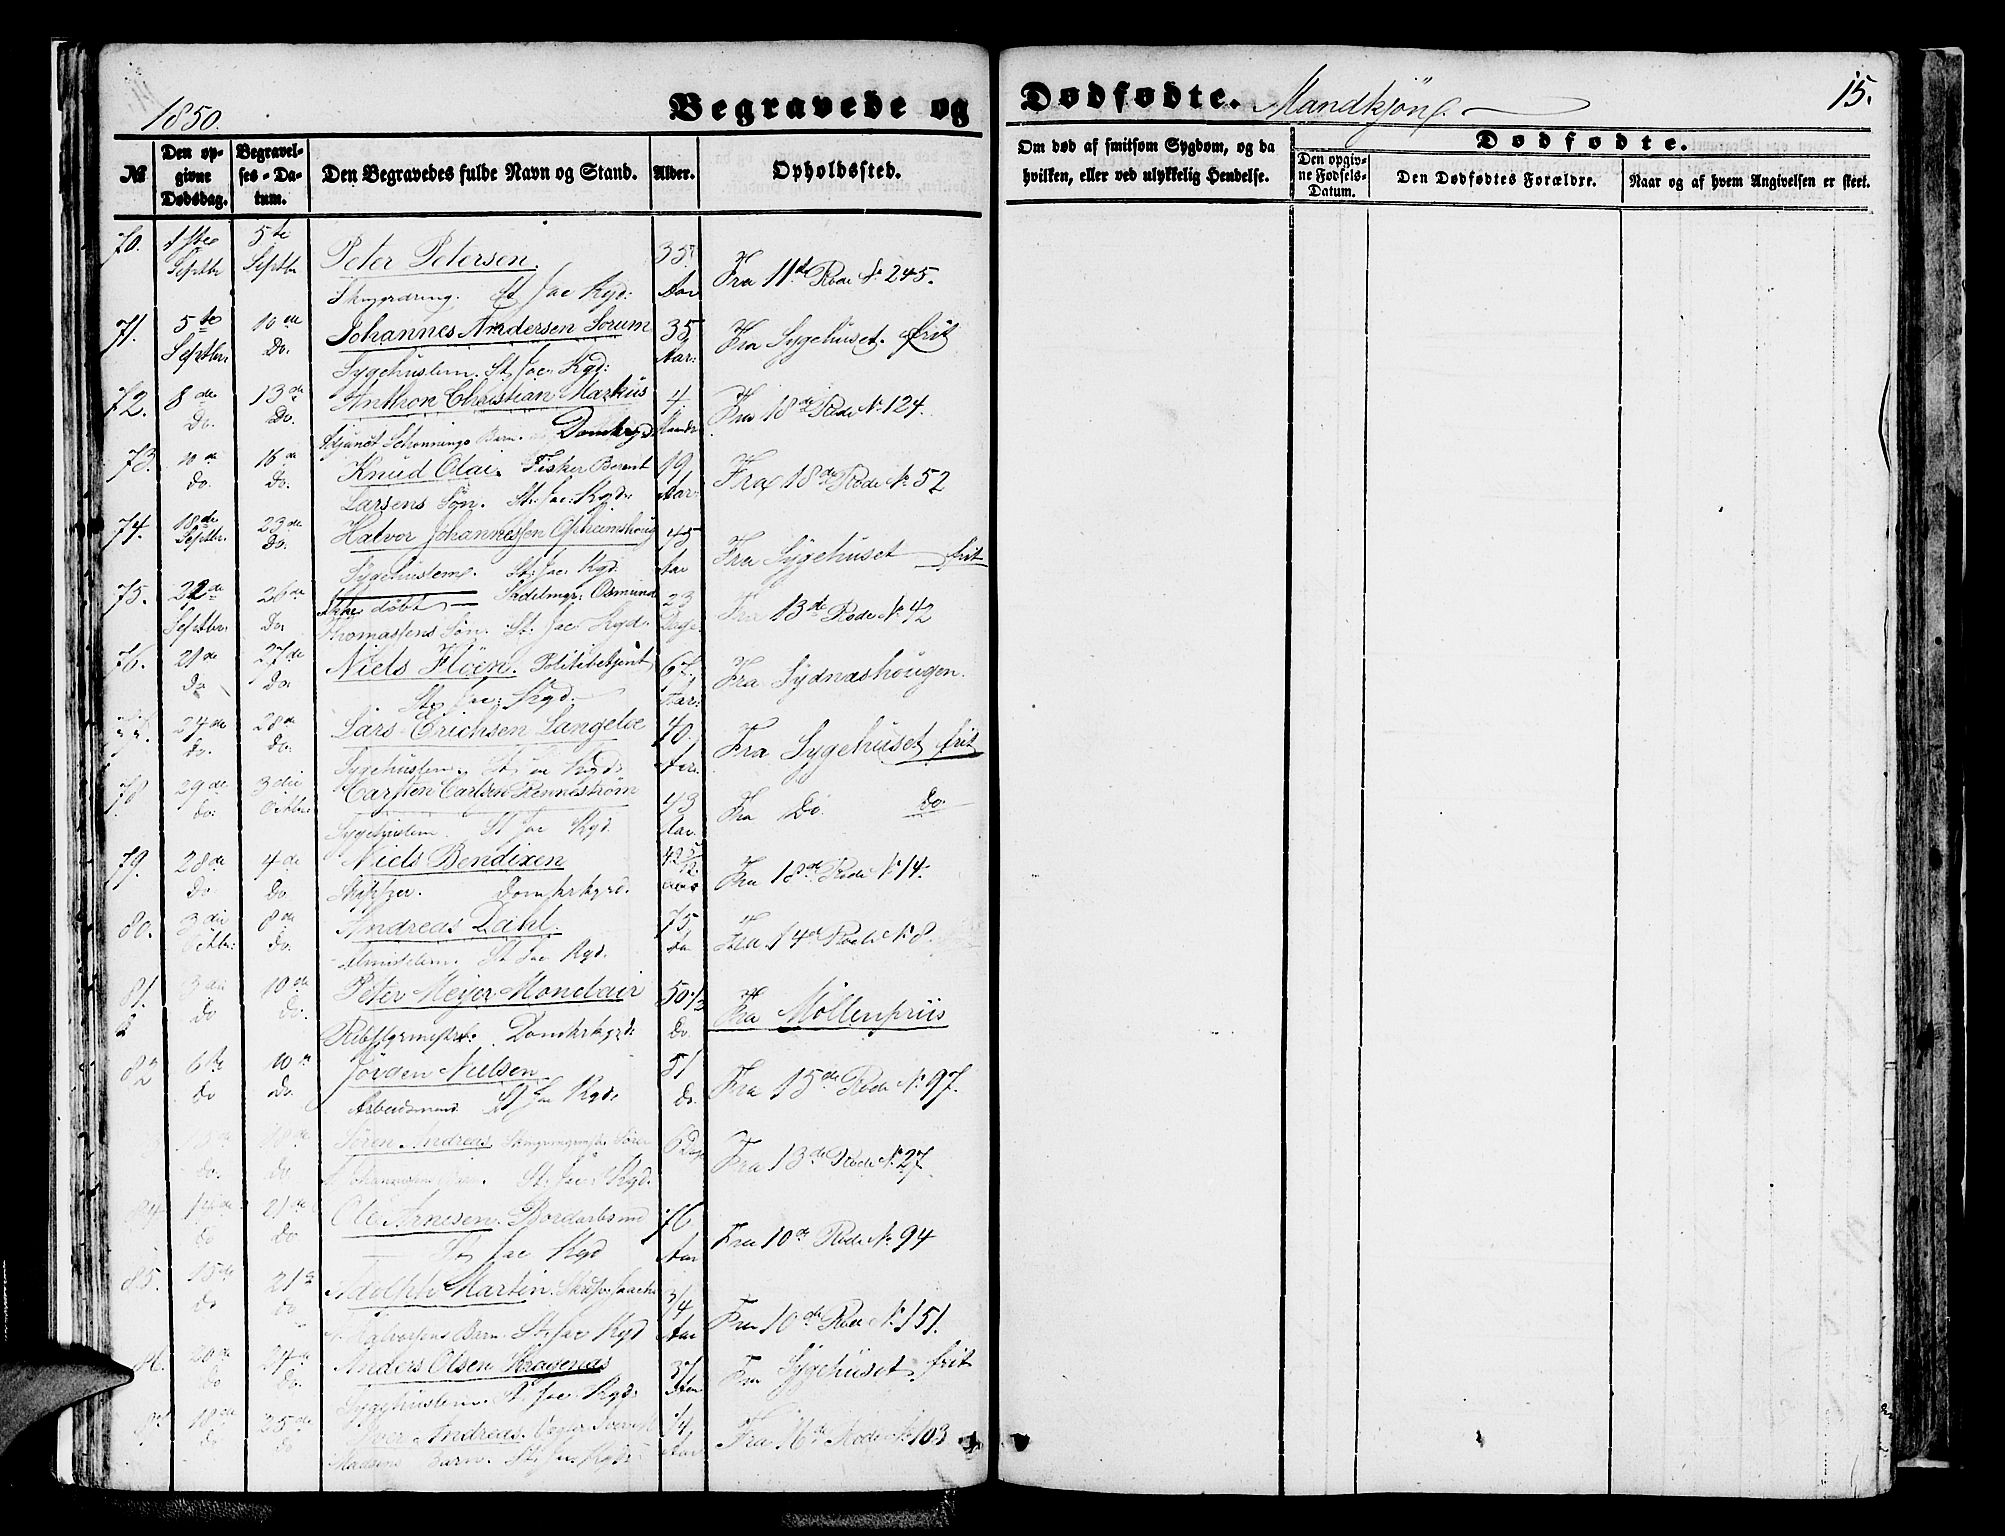 1850.
Begravede og Dødfødte. Mandkjøn.
15.
№
Den opgivne Dødsdag.
Begravelses-Datum.
Den Begravedes fulde Navn og Stand.
Alder.
Opholdssted.
Om død af smitsom Sygdom, og da hvilken, eller ved ulykkelig Hendelse.
Dødfødte.
Den opgivne Fødsels-Datum.
Den Dødfødtes Forældre.
Naar og af hvem Angivelsen er skeet.
70. Septbr 5te Septbr Peter Petersen. 35 Aar Fra 11te Rode No 245.
St Jac Kgd:
71. 5te Septbr. 10de Do. Johannes Andersen Sorum 35 Aar: Fra Sygehuset. frit
Sygehuslem. St. Jac. Kgd:
72. 8de Do. 13de Do. Anthon Christian Markus 4 Fra 18de Rode No 124.
Schønnings Barn. Domkgd
73. 10de Do. 16de Do. Knud Olai. Fisker Berent 19 Aar: Fra 18de Rode No 52
Larsens Søn. St. Jac: Kgd:
74. 18de Septbr. 23de Do. Halvor Johannessen 45 Aar Fra Sygehuset frit
Sygehuslem. St. Jac. Kgd.
75. 22de Septbr. 26de Do Ikke døbt Sadelmgr: Osmund 23 Dage Fra 13de Rode No. 42
Thomassens Søn. St. Jac Kgd.
76. 21de Do 27de Do. Niels Fløen. Politibetjent 67 Aar: Fra Sydnæshougen.
St. Jac: Kgd.
77. 24de Do. 28de Do. Lars Erichsen Langeloe 40. Aar. Fra Sygehuset frit
Sygehuslem. St. Jac Kgd:
78 29de Do. 3die Octbr. Carsten Carlsen Rennestrøm 43 Aar. Fra Do. Do.
Sygehuslem. St Jac Kgd.
79. 28de Do 4de Do. Niels Bendixen 42 5/12 Fra 18de Rode No 14.
Skipper. Domkrkgrd.
80. 3die Octbr: 8de Do. Andreas Dahl. 75 Fra 14de Rode No 8.
St Jac Kgd.
81. 3die Do 10de Do. Peter Meyer Monclair 50 1/2 Do. Fra Møllenpriis
Rebslgrmester. Domkrkgrd:
82 6te Do 10de Do. Jörden Nielsen 51 Do. Fra 15de Rode No 97.
Arbeidsmand St Jac Kgd:
Do. 18de Do. Søren Andreas, Søren 6 Dage Fra 13de Rode No. 27.
St. Jac: Kgd.
84 Do 21de Do. Ole Arnesen. Bordarbsmd 76 Aar Fra 10de Rode No. 94
St Jac Kgd
85. 15de Do 21de Do. Adolph Martin. 3/4 Aar Fra 10de Rode No. 151.
Halvorsens Barn. St. Jac Kgd
86. 20de Do 24de Do. Anders Olsen Kragenæs 37 Fra Sygehuset. frit
Sygehuslem. St. Jac. Kgd:
87 18de Do 25de Do Iver Andreas. 1/4 Aar Fra 16de Rode No 103
Madsens Barn. St. Jac Kgd: